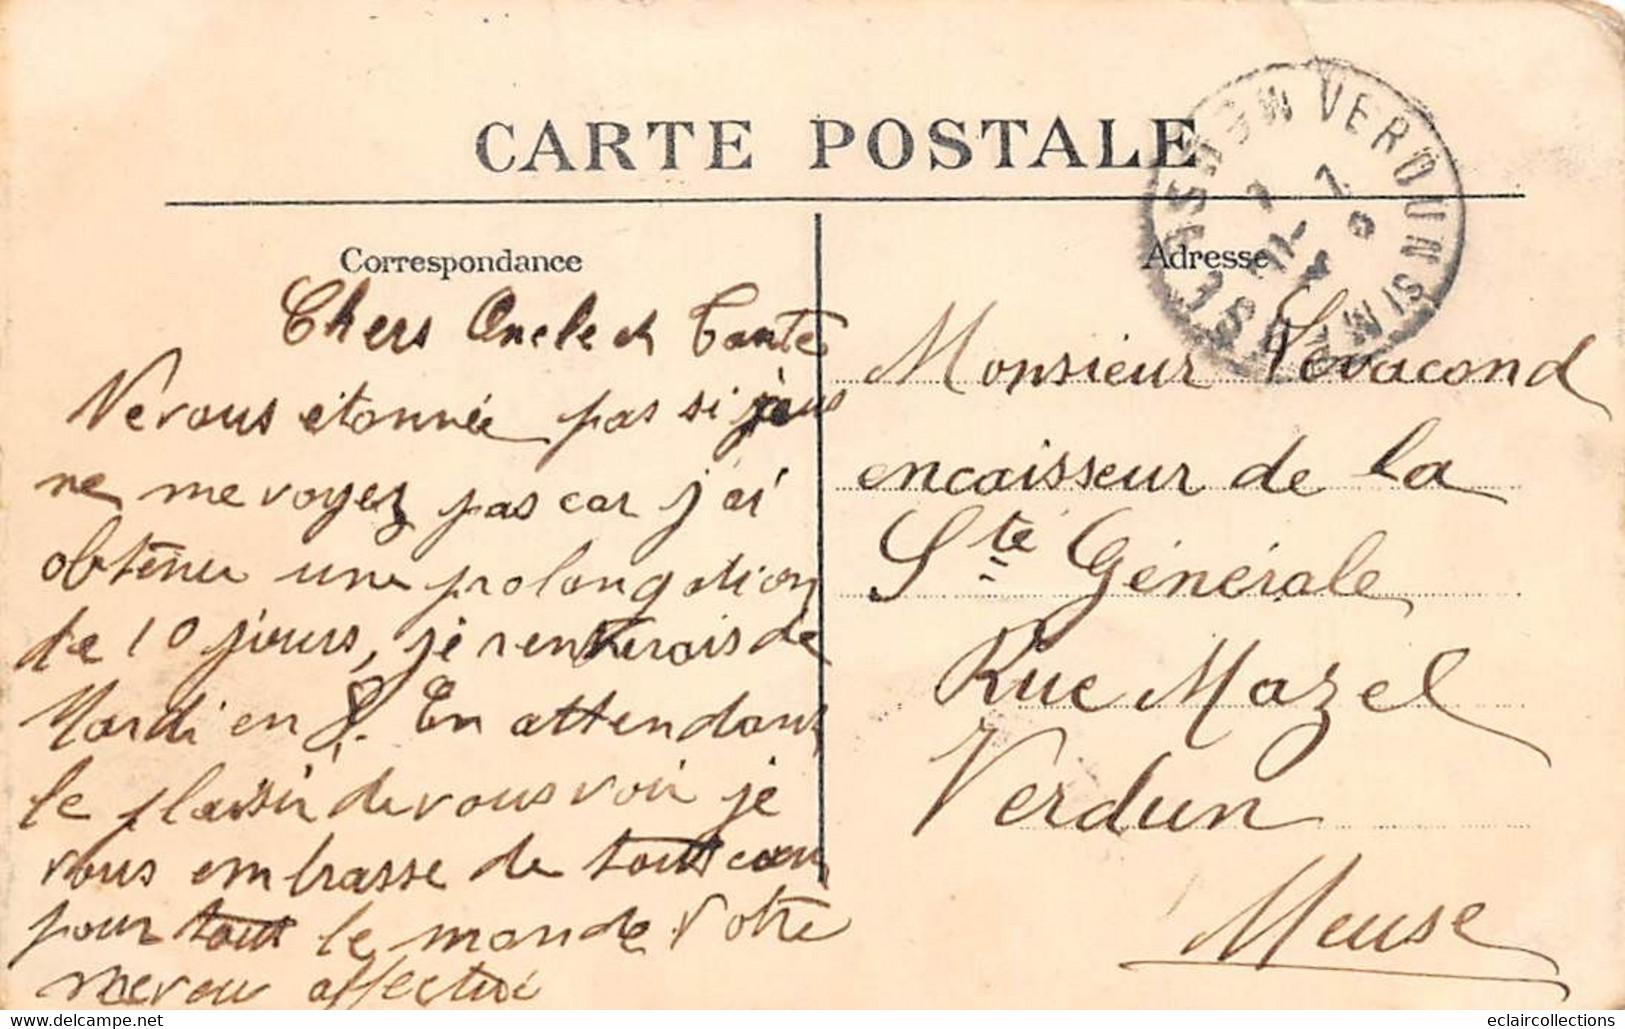 CARTE POSTALE
VERDUN S/ MEUSE MEUSE
Correspondance
Chers Oncle et Tante
Ne vous étonnée pas si
ne me voyez pas car j'ai
obtenu une prolongation
de 10 jours, je rentrerais de
Mardi en 8. En attendant
le plaisir de vous voir je
vous embrasse de tout cœur
pour tout le monde Votre
neveu affectué
Adresse
Monsieur Vevacond
encaisseur de la
Sté Générale
Rue Mazel
Verdun
Meuse
delcampe.net
eclaircollections